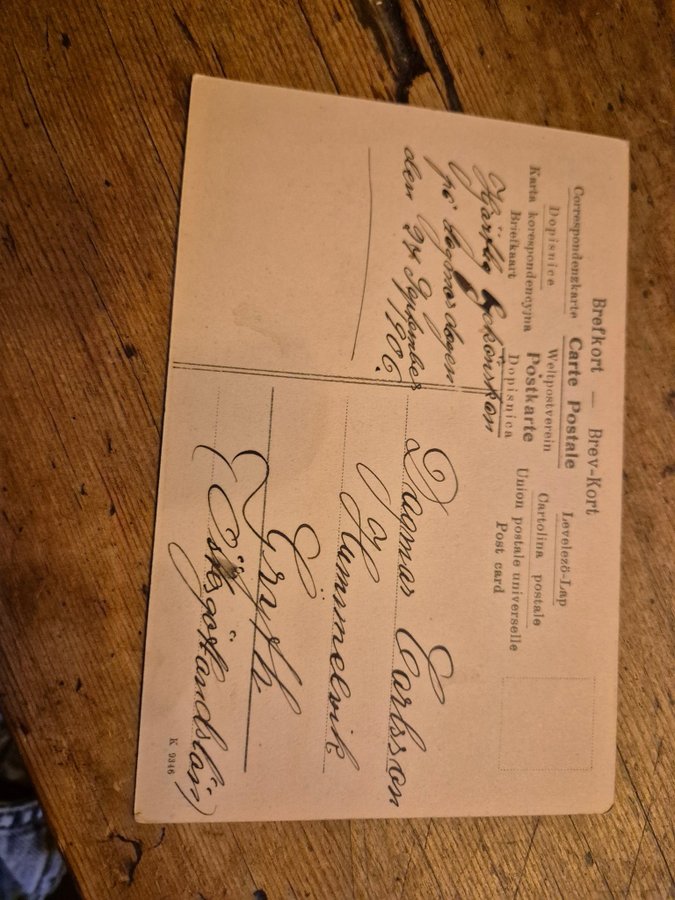 Brefkort — Brev-Kort
Correspondenzkarte Carte Postale Levelező-Lap
Dopisnice Weltpostverein Cartolina postale
Karta korespondencyjna Postkarte Union postale universelle
Briefkaart Dopisnica Post card
Hjärtlig Lyckönskan
på dagmardagen
den 24 September
1906.
Dagmar Carlsson
Hummelvik
Gryth
(Östergötlandslän)
K 9346